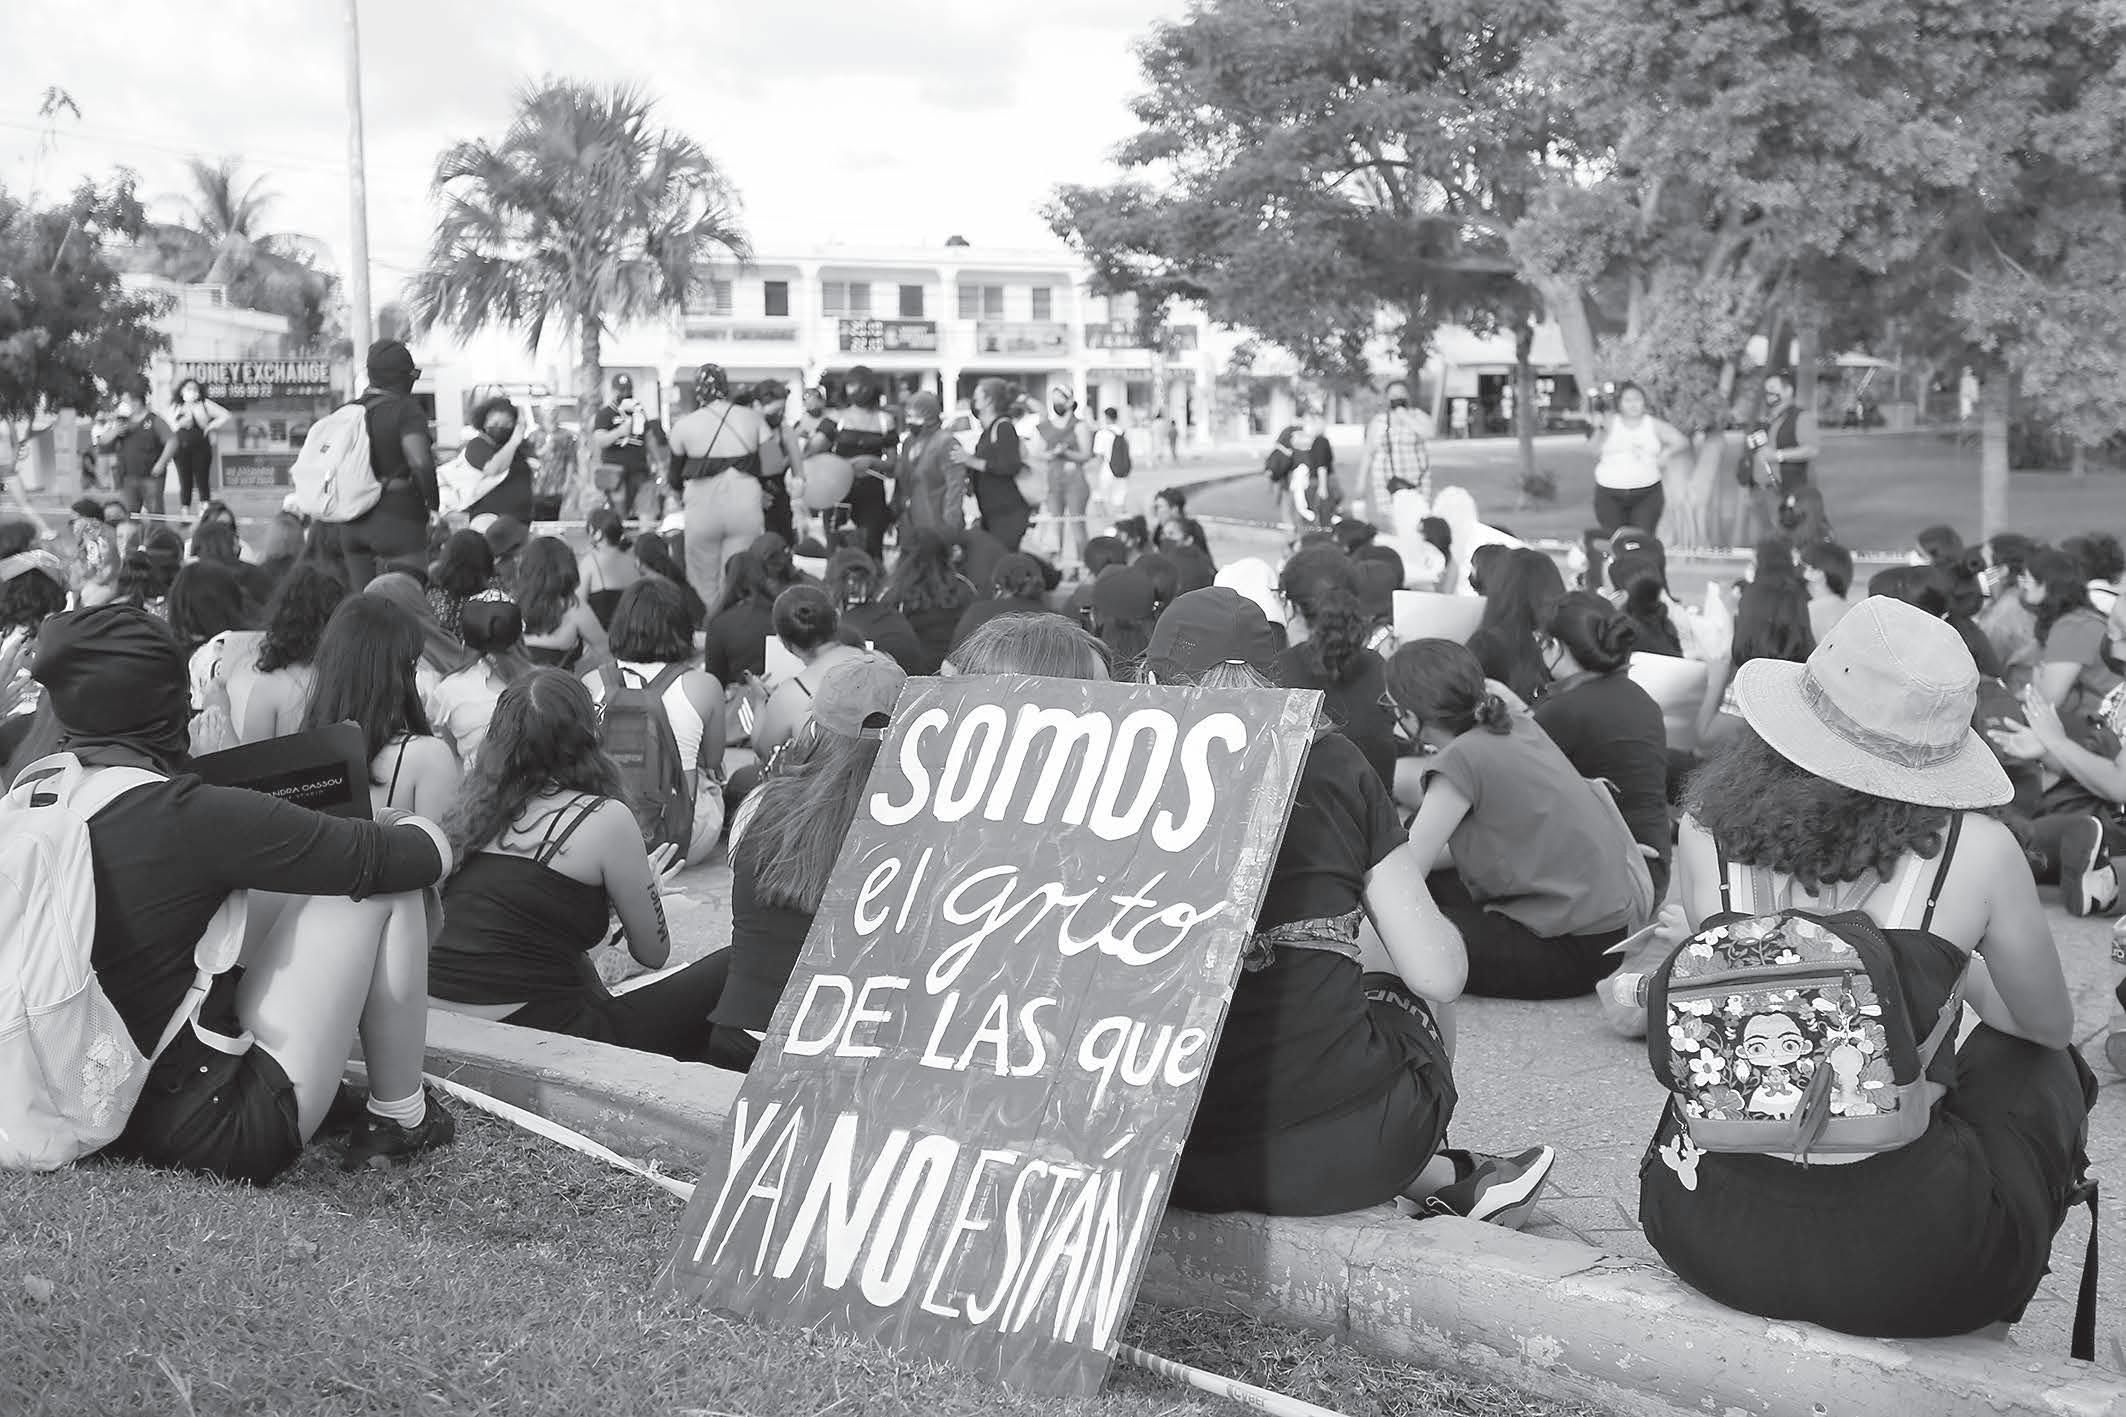 MONEY EXCHANGE
SOMOS
el grito
DE LAS que
YA NO ESTÁN